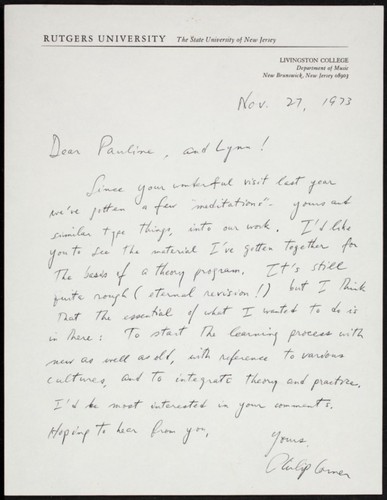 RUTGERS UNIVERSITY The State University of New Jersey
LIVINGSTON COLLEGE
Department of Music
New Brunswick, New Jersey 08903
Nov. 27, 1973
Dear Pauline, and Lynn!
Since your wonderful visit last year
we've gotten a few "meditations" - yours and
similar type things, into our work. I'd like
you to see the material I've gotten together for
the basis of a theory program. It's still
quite rough (eternal revision!) but I think
that the essential of what I wanted to do is
in there: To start the learning process with
new as well as old, with reference to various
cultures, and to integrate theory and practice.
I'd be most interested in your comments.
Hoping to hear from you,
Yours,
Philip Corner